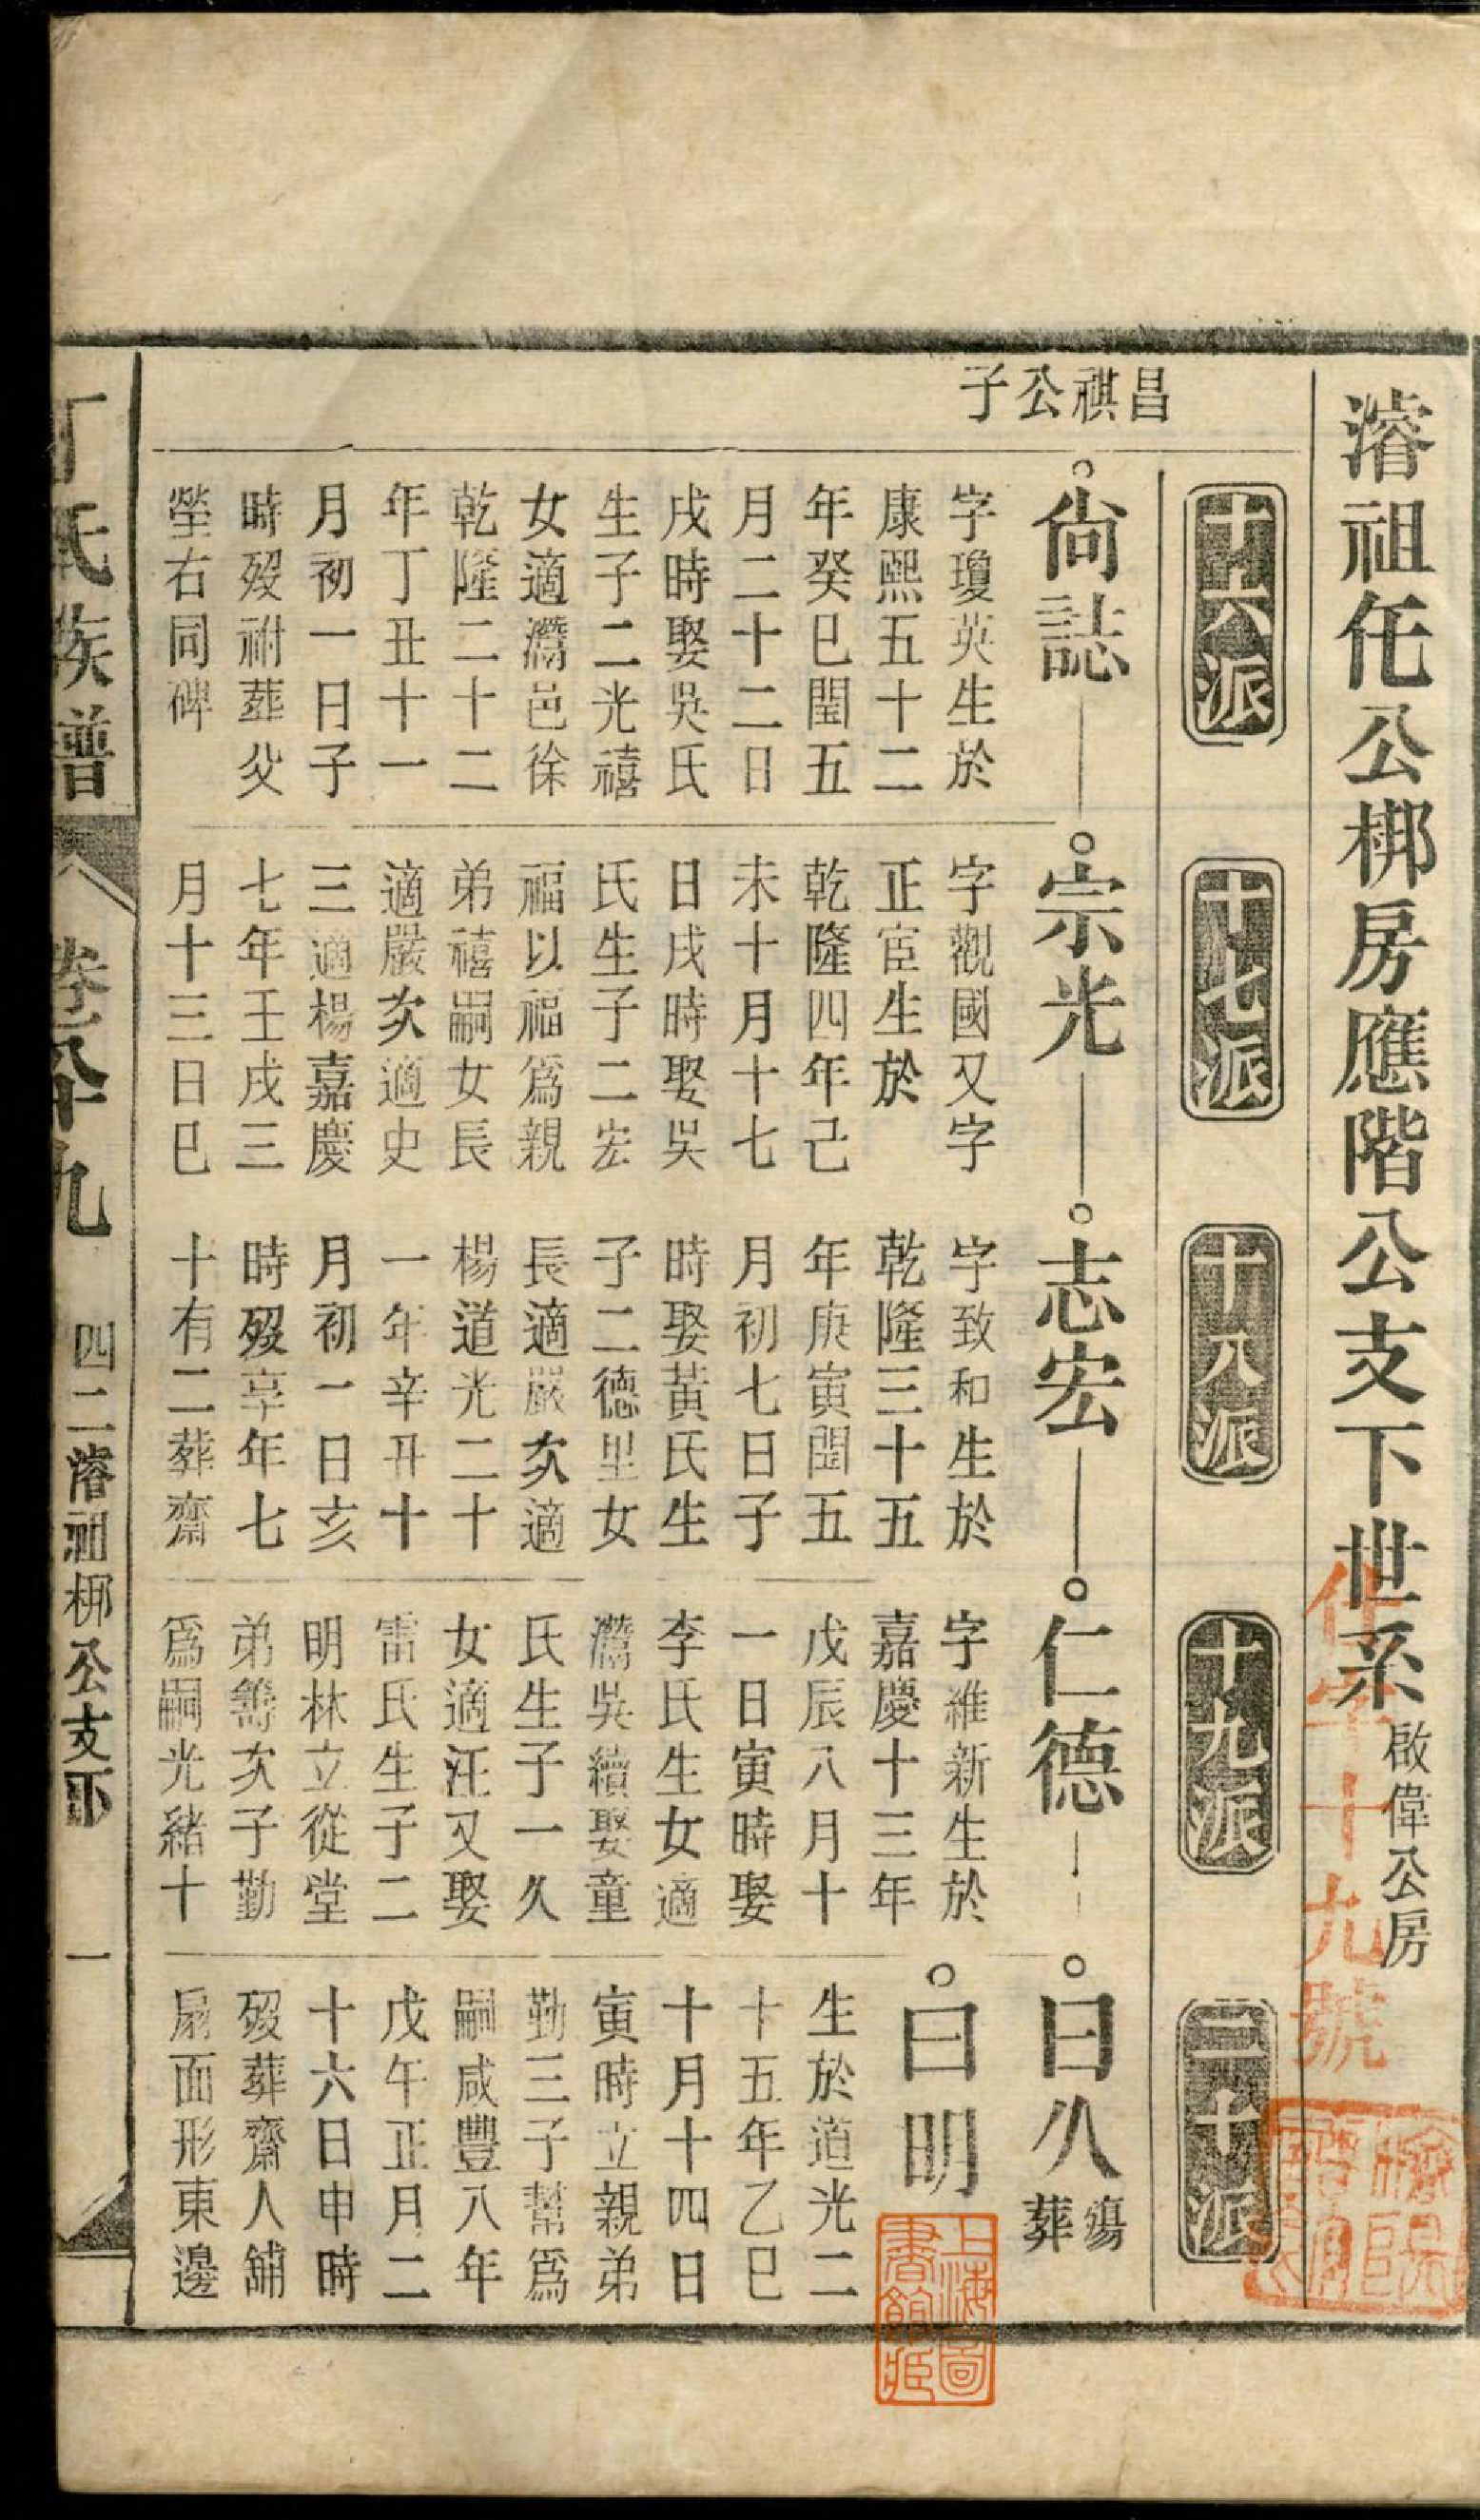 濬祖仛公梆房應階公支下世系 啟偉公房
作字十九號
十六派
十七派
十八派
十九派
二十派
昌祺公子
尙誌
字瓊英生於
康熙五十二
年癸巳閏五
月二十二日
戌時娶吳氏
生子二光禧
女適灊邑徐
乾隆二十二
年丁丑十一
月初一日子
時歿祔葬父
塋右同碑
宗光
字觀國又字
正宦生於
乾隆四年己
未十月十七
日戌時娶吳
氏生子二宏
福以福爲親
弟禧嗣女長
適嚴次適史
三適楊嘉慶
七年壬戌三
月十三日巳
志宏
字致和生於
乾隆三十五
年庚寅閏五
月初七日子
時娶黃氏生
子二德里女
長適嚴次適
楊道光二十
一年辛丑十
月初一日亥
時歿享年七
十有二葬齋
仁德
字維新生於
嘉慶十三年
戊辰八月十
一日寅時娶
李氏生女適
灊吳續娶童
氏生子一久
女適汪又娶
雷氏生子二
明林立從堂
弟籌次子勤
爲嗣光緒十
曰久 殤葬
曰明
生於道光二
十五年乙巳
十月十四日
寅時立親弟
勤三子幫爲
嗣咸豐八年
戊午正月二
十六日申時
歿葬齋人舖
扇面形東邊
上海圖書館藏
丁氏族譜 卷八十九 四二濬祖梆公支卭 一